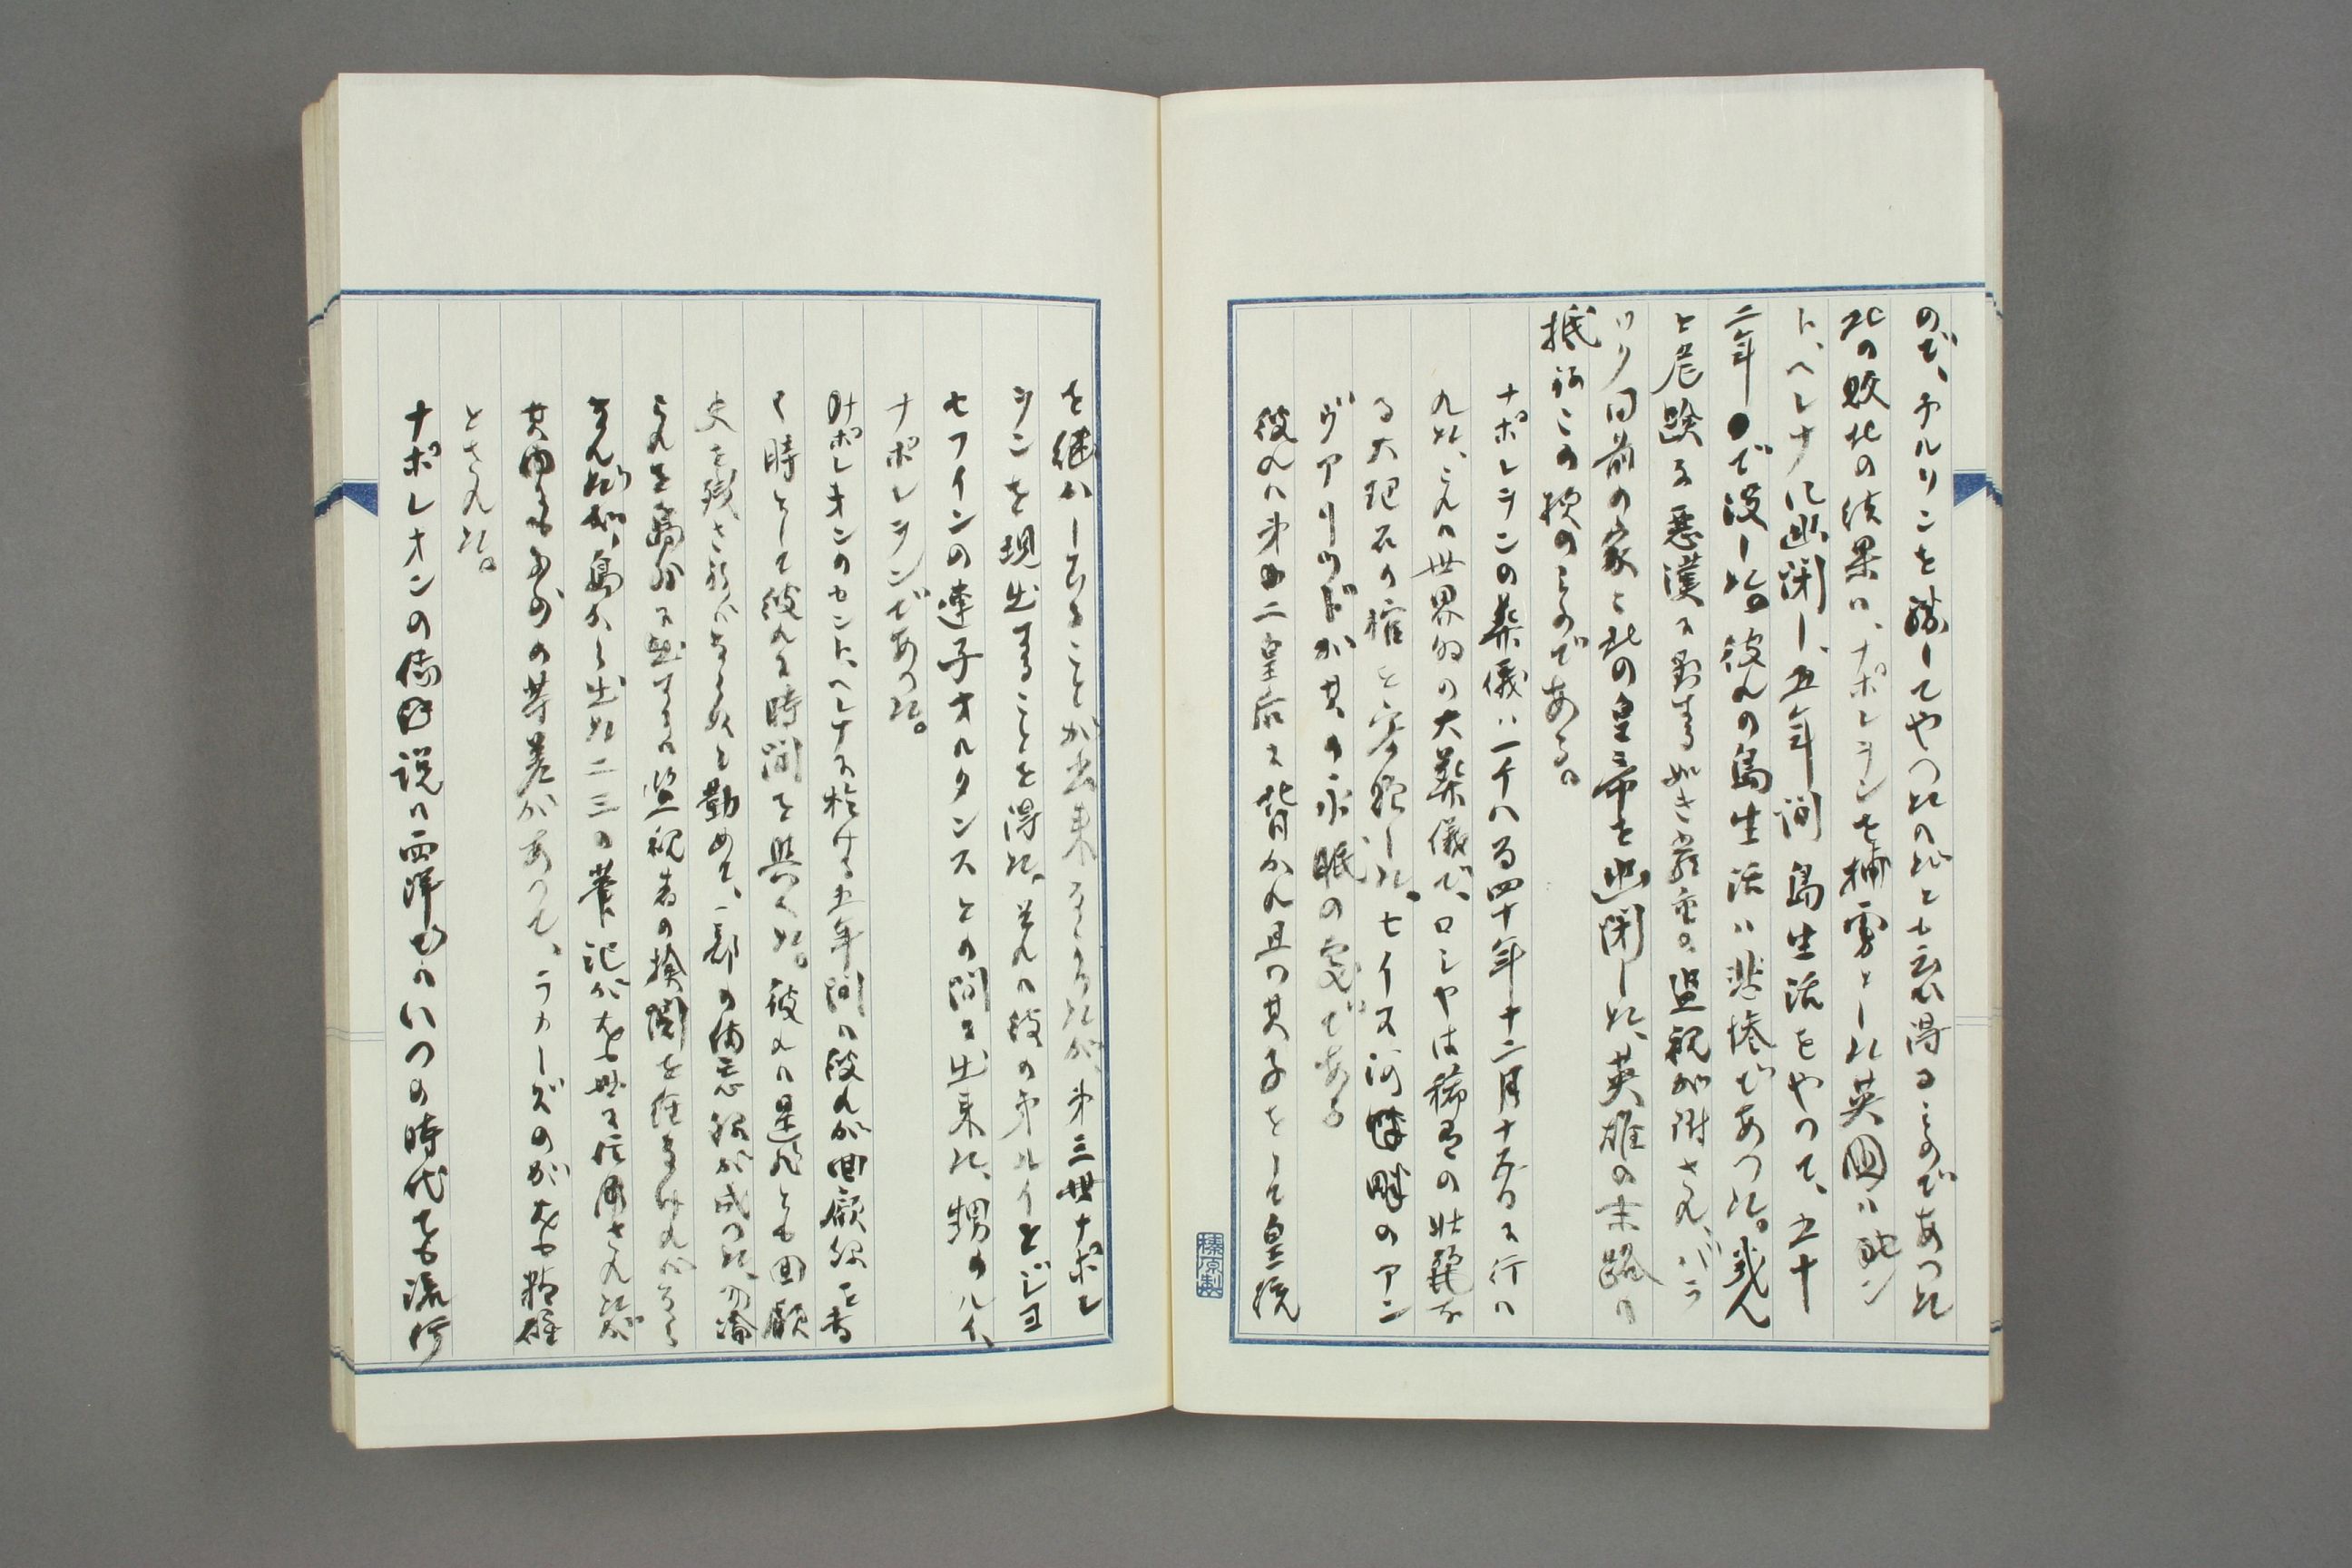 ので、チルリンを孫してやつたのだと云ひ得るものであつた
北の敗北の結果は、ナポレヲンを捕虜とした英国ハセン
ト、ヘレナに幽閉し、五年間島生活をやつて、五十
二年で没した。彼れの島生活ハ悲惨であつた。幾んど
と危険な悪漢に対する如き厳重な監視が附され、バラ
ック同前の家に此の皇帝を幽閉した、英雄の末路ハ
抵ねこの様のものである。
ナポレヲンの葬儀ハ一千八百四十年十二月十五日に行ハ
れた、これハ世界的の大葬儀で、ロシヤは稀有の壮麗な
る大理石の棺を寄贈した。セイヌ河畔のアン
ヴアリツドが其の永眠の処である
彼れハ第二皇后に背かれ且つ其子をして皇統
を継がしむることが出来なかつたが、第三世ナポレ
ヲンを現出することを得た、それハ彼の弟ルイとジヨ
セフインの連子オルタンスとの間に出来た、甥のルイ、
ナポレヲンであつた。
ナポレオンのセント、ヘレナに於ける五年間ハ彼れが回顧録を書
く時として彼れに時間を与へた。彼れハ是非とも回顧
史を残さねバならぬと勤めて、一部の備忘録が成つた、勿論
これを島外に出すにハ監視者の検閲を経なけれバならな
なんだが、島から出た二三の筆記が尤も世に信用されたが
其内にも多少の等差があつて、ラカーズのが尤も精確
とされた。
ナポレオンの傳説ハ西洋でハいつの時代をも流行
榛原製